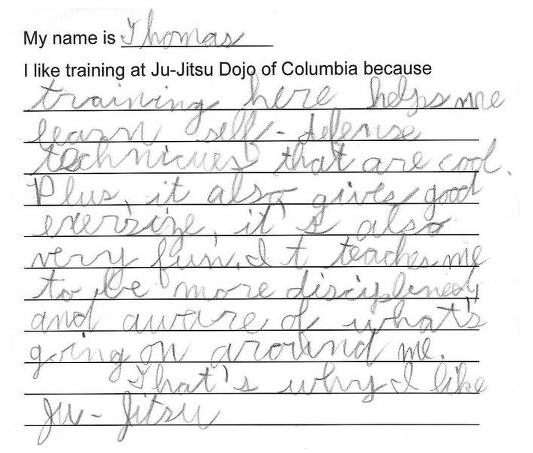 My name is Thomas
I like training at Ju-Jitsu Dojo of Columbia because
training here helps me
learn self-defense
techniques that are cool.
Plus, it also gives good
exersize, it's also
very fun. It teaches me
to be more disciplined,
and aware of what's
going on around me.
That's why I like
Ju-Jitsu